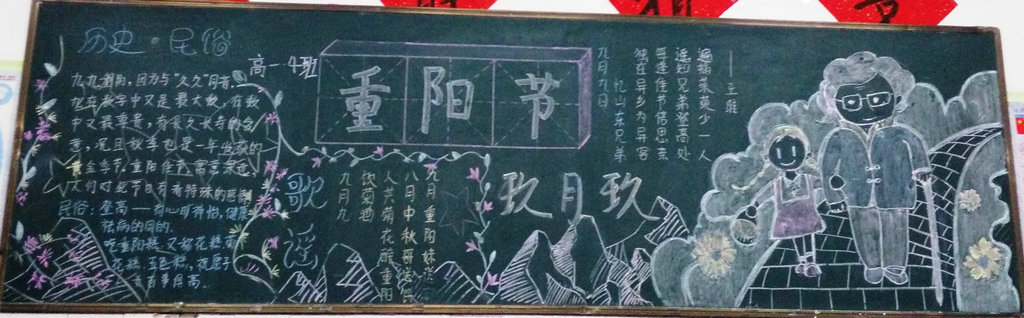 历史·民俗
高一4班
九九重阳，因为与"久久"同音，
九在数字中又是最大数，有
中又最尊贵，有长久长寿的含
意，况且秋季也是一年当中的
黄金季节，重阳佳节，寓意深远，
人们对此节日有着特殊的感
民俗：登高
祛病的目的。
吃重阳糕 又称花糕 菊
花糕、五色糕，
重阳节
歌谣
九月九
饮菊酒
人共菊花醉重阳
九月重阳
八月中秋
玖月玖
九月九日
忆山东兄弟
——王维
独在异乡为异客
每逢佳节倍思亲
遥知兄弟登高处
遍插茱萸少一人